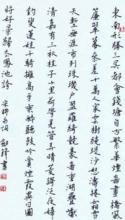 東南形勝三吳都會錢塘自古繁華煙柳畫橋風
簾翠幕參差十萬人家雲樹繞堤沙怒濤捲霜雪
天塹無涯市列珠璣戶盈羅綺競豪奢重湖疊巘
清嘉有三秋桂子十里荷花羌管弄晴菱歌泛夜嬉嬉
釣叟蓮娃千騎擁高牙乘醉聽簫鼓吟賞煙霞異日圖
將好景歸去鳳池誇 宋柳永詞